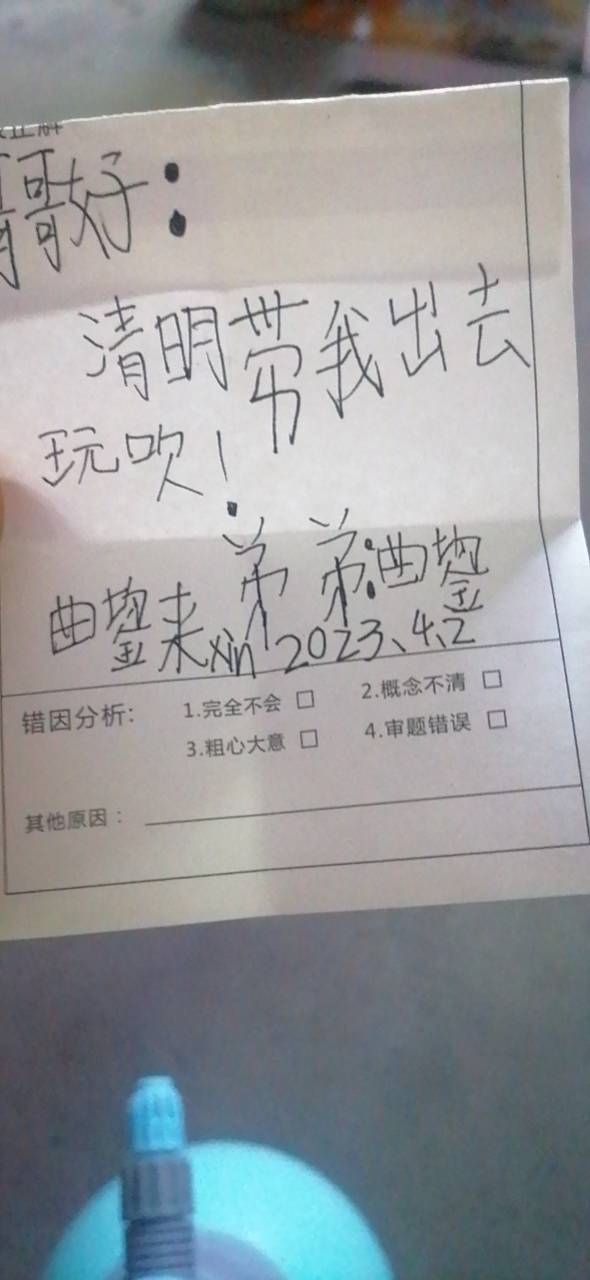 哥哥好:
清明带我出去
玩吹!
弟弟:曲鋆
曲鋆来xin 2023、4、2
错因分析: 1.完全不会 □ 2.概念不清 □
3.粗心大意 □ 4.审题错误 □
其他原因: